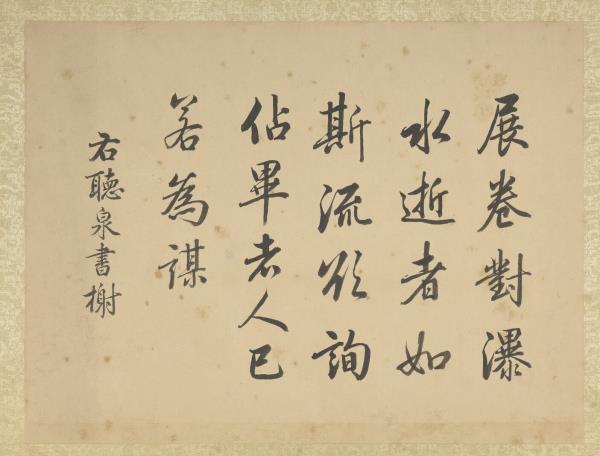 展卷對瀑
水逝者如
斯流欲詢
佔畢老人已
若為謀
右聽泉書榭